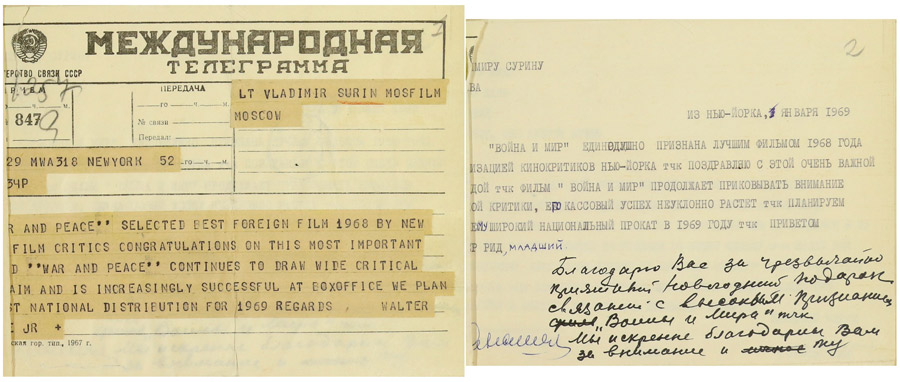 1
МЕЖДУНАРОДНАЯ
ТЕЛЕГРАММА
ТЕРСТВО СВЯЗИ СССР
ПРИЕМ
ПЕРЕДАЧА
LT VLADIMIR SURIN MOSFILM
MOSCOW
го ч. м.
№ связи
Передал:
847
29 MWA318 NEWYORK 52
34P
R AND PEACE'' SELECTED BEST FOREIGN FILM 1968 BY NEW
FILM CRITICS CONGRATULATIONS ON THIS MOST IMPORTANT
D ''WAR AND PEACE'' CONTINUES TO DRAW WIDE CRITICAL
AIM AND IS INCREASINGLY SUCCESSFUL AT BOXOFFICE WE PLAN
ST NATIONAL DISTRIBUTION FOR 1969 REGARDS , WALTER
E JR +
ская гор. тип., 1967 г.
2
МИРУ СУРИНУ
ВА
ИЗ НЬЮ-ЙОРКА, 1 ЯНВАРЯ 1969
"ВОЙНА И МИР" ЕДИНОДУШНО ПРИЗНАНА ЛУЧШИМ ФИЛЬМОМ 1968 ГОДА
ИЗАЦИЕЙ КИНОКРИТИКОВ НЬЮ-ЙОРКА ТЧК ПОЗДРАВЛЯЮ С ЭТОЙ ОЧЕНЬ ВАЖНОЙ
ДОЙ ТЧК ФИЛЬМ " ВОЙНА И МИР" ПРОДОЛЖАЕТ ПРИКОВЫВАТЬ ВНИМАНИЕ
ОЙ КРИТИКИ, ЕГО КАССОВЫЙ УСПЕХ НЕУКЛОННО РАСТЕТ ТЧК ПЛАНИРУЕМ
ШИРОКИЙ НАЦИОНАЛЬНЫЙ ПРОКАТ В 1969 ГОДУ ТЧК ПРИВЕТОМ
Р РИД, МЛАДШИЙ
Благодарю Вас за чрезвычайно
приятный Новогодний подарок
связаный с высоким признанием
"Войны и Мира" тчк
Мы искренне благодарим Вам
за внимание и ту